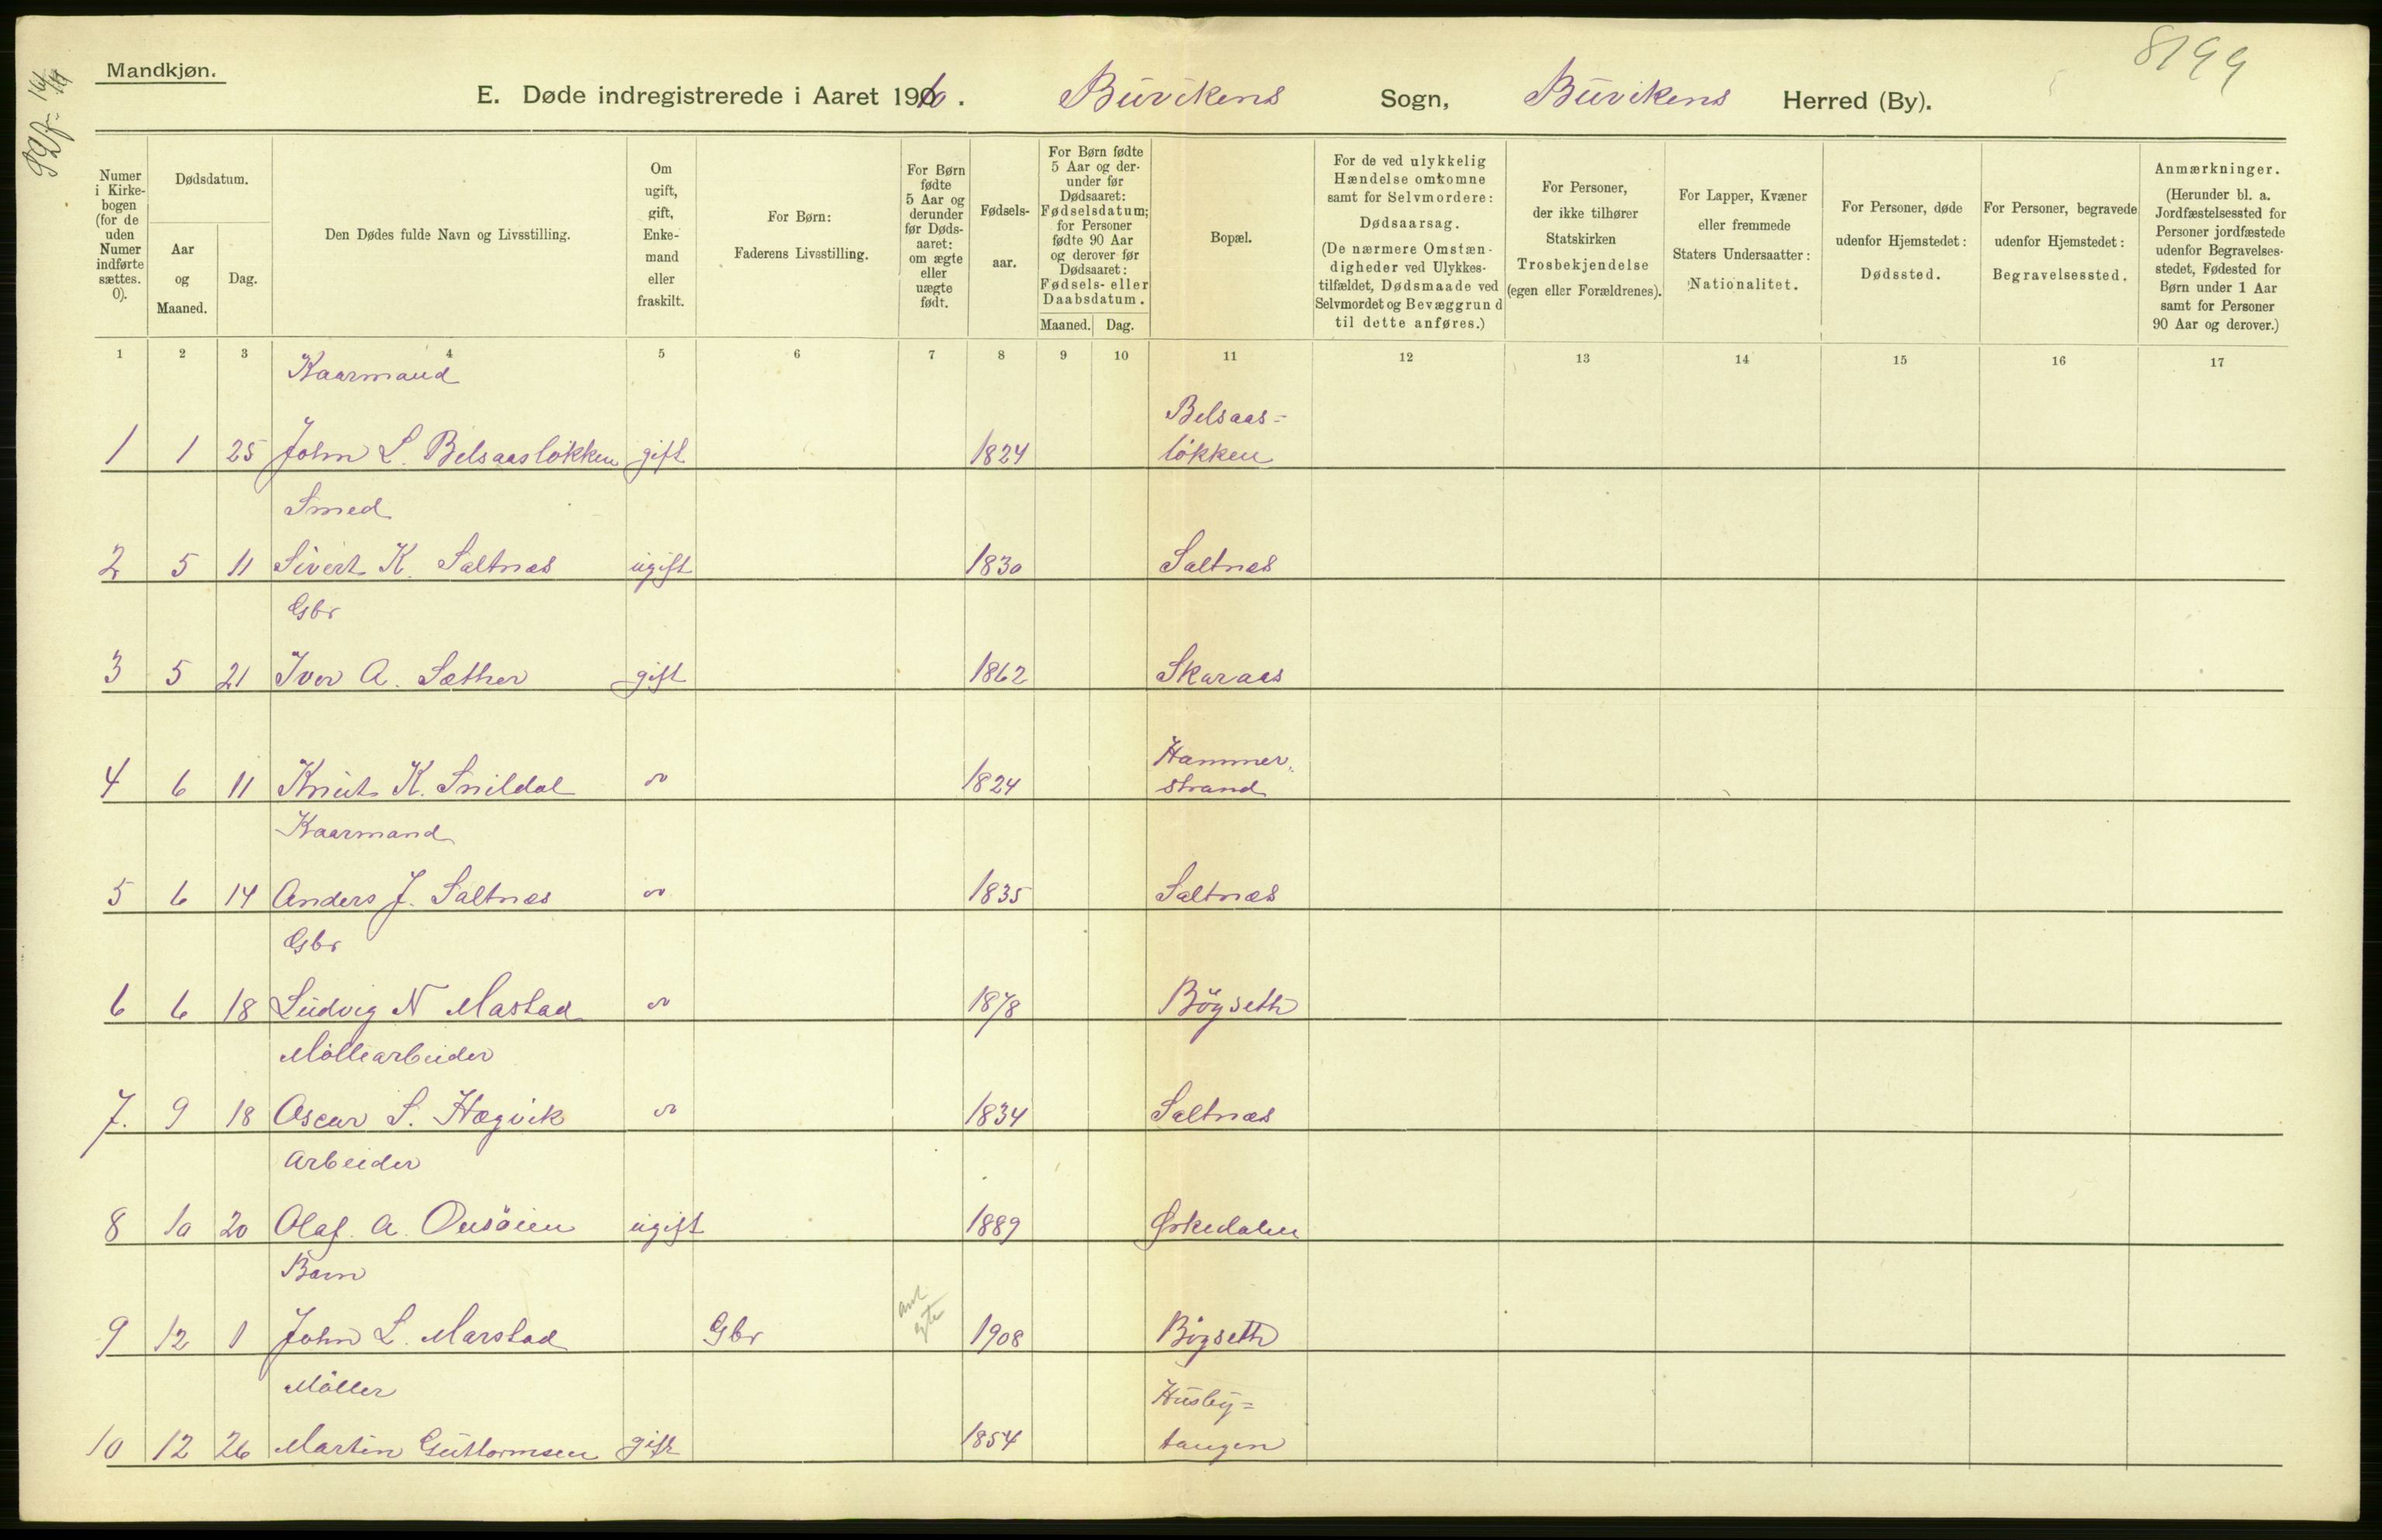 8199
Mandkjøn.
E. Døde indregistrerede i Aaret 1910. Buvikens Sogn, Buvikens Herred (By).
Numer i Kirkebogen (for de uden Numer indførte sættes. 0).
Dødsdatum.
Aar og Maaned.
Dag.
Den Dødes fulde Navn og Livsstilling.
Om ugift, gift, Enkemand eller fraskilt.
For Børn: Faderens Livsstilling.
For Børn fødte 5 Aar og derunder før Dødsaaret: om ægte eller uægte født.
Fødselsaar.
For Børn fødte 5 Aar og derunder før Dødsaaret: Fødselsdatum; for Personer fødte 90 Aar og derover før Dødsaaret: Fødsels- eller Daabsdatum.
Maaned. Dag.
Bopæl.
For de ved ulykkelig Hændelse omkomne samt for Selvmordere: Dødsaarsag. (De nærmere Omstændigheder ved Ulykkestilfældet, Dødsmaade ved Selvmordet og Bevæggrund til dette anføres.)
For Personer, der ikke tilhører Statskirken Trosbekjendelse (egen eller Forældrenes).
For Lapper, Kvæner eller fremmede Staters Undersaatter: Nationalitet.
For Personer, døde udenfor Hjemstedet: Dødssted.
For Personer, begravede udenfor Hjemstedet: Begravelsessted.
Anmærkninger. (Herunder bl. a. Jordfæstelsessted for Personer jordfæstede udenfor Begravelsesstedet, Fødested for Børn under 1 Aar samt for Personer 90 Aar og derover.)
1 2 3 4 5 6 7 8 9 10 11 12 13 14 15 16 17
Kaarmand
Belsaas-
1 1 25 John L. Belsaasløkken gift 1824 løkken
Smed
2 5 11 Sivert K. Saltnæs ugift 1830 Saltnæs
Gbr
3 5 21 Iver A. Sæther gift 1862 Skaraas
Hammer-
4 6 11 Knut K. Snildal " 1824 strand
Kaarmand
5 6 14 Anders J. Saltnæs " 1835 Saltnæs
Gbr
6 6 18 Ludvig N Mastad " 1878 Bögseth
Möllearbeider
7. 9 18 Oscar S. Hægvik " 1834 Saltnæs
Arbeider
8 10 20 Olaf. A. Ousöien ugift 1889 Ørkedalen
Barn
9 12 1 John L. Marstad Gbr ant. egte 1908 Bögseth
Möller
Husby=
10 12 26 Martin Guttormsen gift 1854 tangen